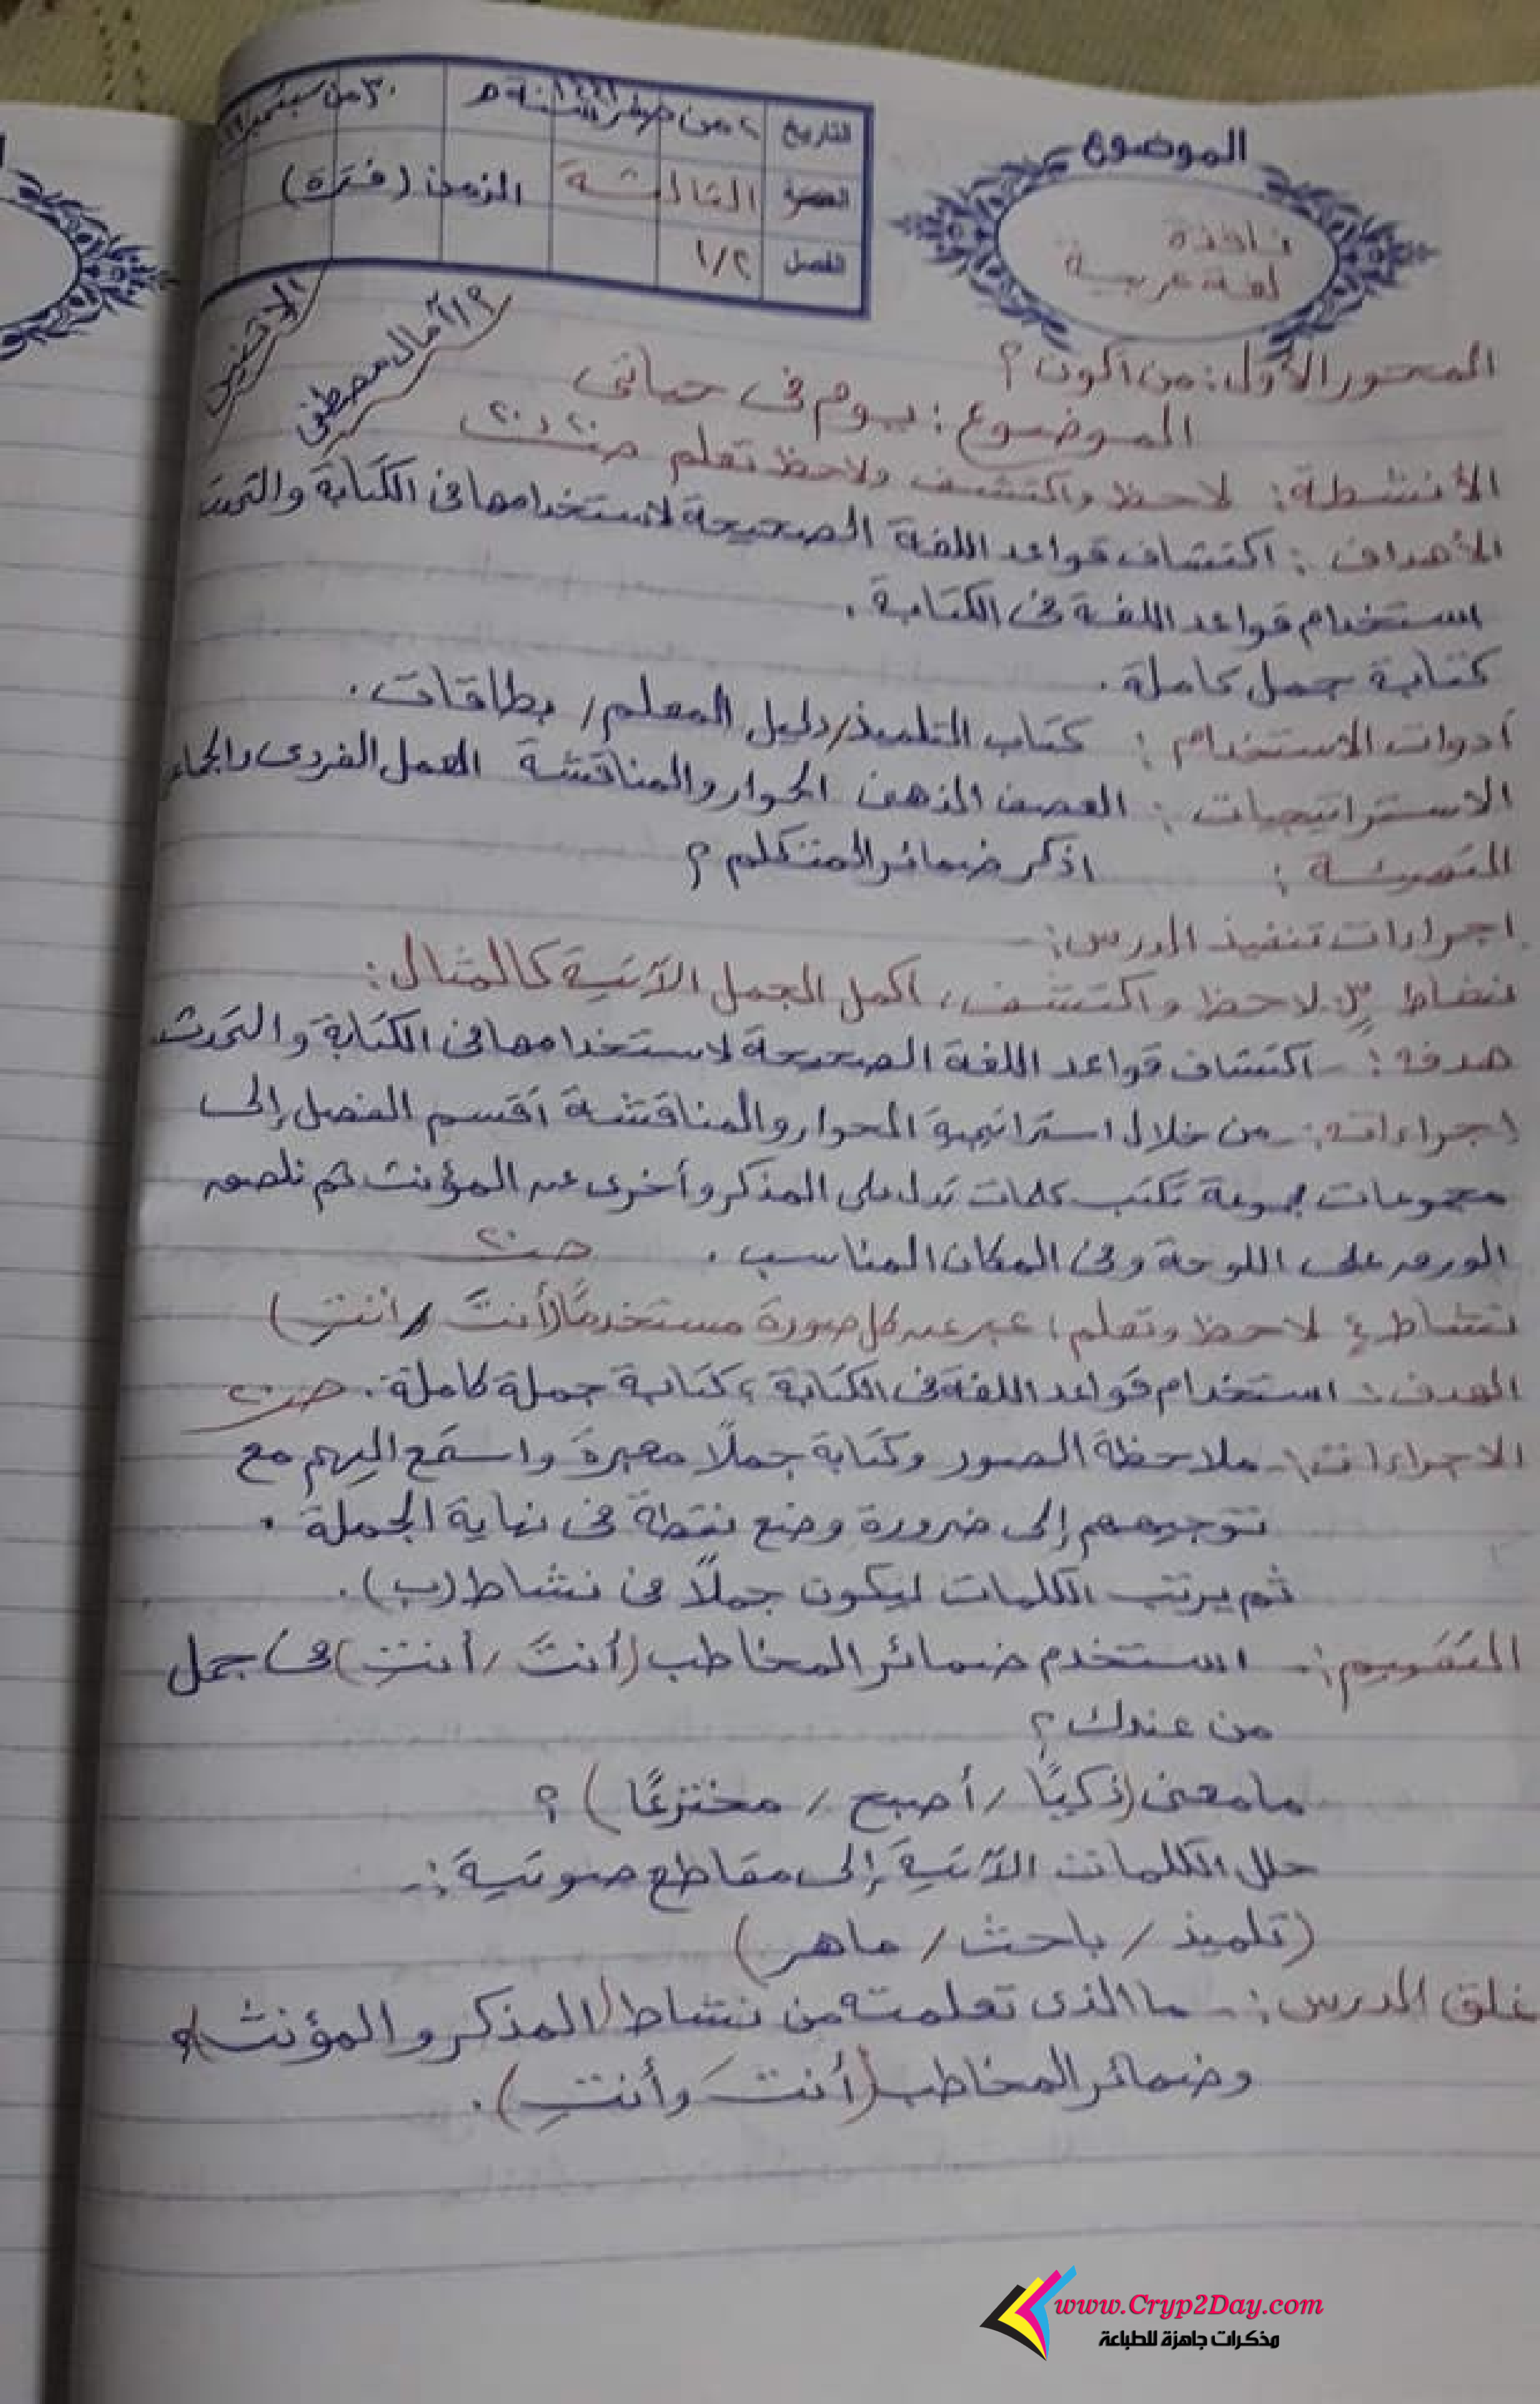 الموضوع
نافذة
لغة عربية
التاريخ ٢ من صفر سنة ١٤٤١ هـ ٣٠ من سبتمبر
الحصة الثالثة الزمن (فترة)
الفصل ١/٢
الاثنين
٩/٢ آمال مصطفى
المحور الأول: من أكون؟
الموضوع: يوم فى حياتى
الأنشطة: لاحظ واكتشف ولاحظ تعلم
الأهداف: اكتشاف قواعد اللغة الصحيحة لاستخدامها فى الكتابة والتحدث
استخدام قواعد اللغة فى الكتابة.
كتابة جمل كاملة.
أدوات الاستخدام: كتاب التلميذ/ دليل المعلم/ بطاقات.
الاستراتيجيات: العصف الذهنى الحوار والمناقشة العمل الفردى
التهيئة: اذكر ضمائر المتكلم؟
اجراءات تنفيذ الدرس:-
نشاط ٣: لاحظ واكتشف، أكمل الجمل الآتية كالمثال:
هدفه:- اكتشاف قواعد اللغة الصحيحة لاستخدامها فى الكتابة والتحدث
إجراءاته:- من خلال استراتيجية الحوار والمناقشة أقسم الفصل إلى
مجموعات مجموعة تكتب كلمات تدل على المذكر وأخرى عن المؤنث ثم نلصق
الورق على اللوحة وفى المكان المناسب. صـ٢٠
نشاط ٤ لاحظ وتعلم؛ عبر عن كل صورة مستخدمًا (أنتَ / أنتِ)
الهدف: استخدام قواعد اللغة فى الكتابة، كتابة جملة كاملة. صـ٢٠
الاجراءات:- ملاحظة الصور وكتابة جملًا معبرة واستمع اليهم مع
توجيههم إلى ضرورة وضع نقطة فى نهاية الجملة.
ثم يرتب الكلمات ليكون جملًا فى نشاط (ب).
التقويم:- استخدم ضمائر المخاطب (أنتَ / أنتِ) فى جمل
من عندك؟
ما معنى (ذكيًا / أصبح / مخترعًا)؟
حلل الكلمات الآتية إلى مقاطع صوتية:-
(تلميذ / باحث / ماهر)
غلق الدرس:- ما الذى تعلمته من نشاط (المذكر والمؤنث)؟
وضمائر المخاطب (أنتَ وأنتِ).
www.Cryp2Day.com
مذكرات جاهزة للطباعة